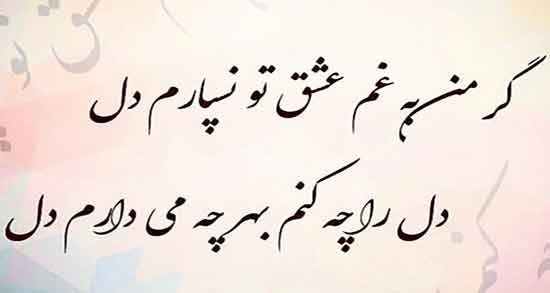 گر من به غم عشق تو نسپارم دل
دل را چه کنم بهر چه می دارم دل